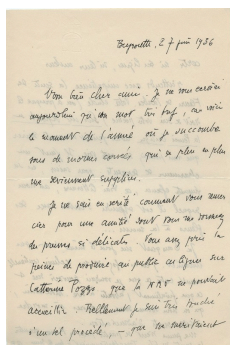 27 juin 1936
Mon bien cher ami. Je ne vous écrirai
aujourd'hui qu'un mot très bref, car voici
le moment de l'année où je succombe
sous de mornes corvées qui de plus en plus
me deviennent supplice.
Je ne sais en vérité comment vous remer
cier pour une amitié dont vous me donnez
des preuves si délicates. Vous avez pris la
peine de produire au public ces lignes sur
Catherine Pozzi que la NRF ne pouvait
accueillir. Réellement je suis très touché
d'un tel procédé — que ne méritaient